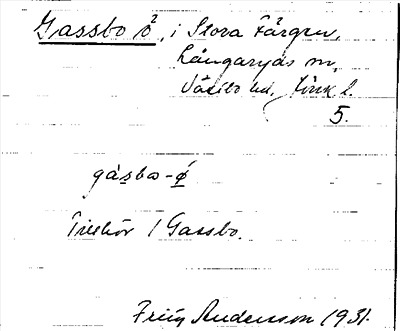 Gassbo ö, i Stora Färgen,
Långaryds sn,
Västbo hd, Jönk l.
5.
gàsbo-ǿ
Tillhör / Gassbo.
Fritz Andersson 1931.